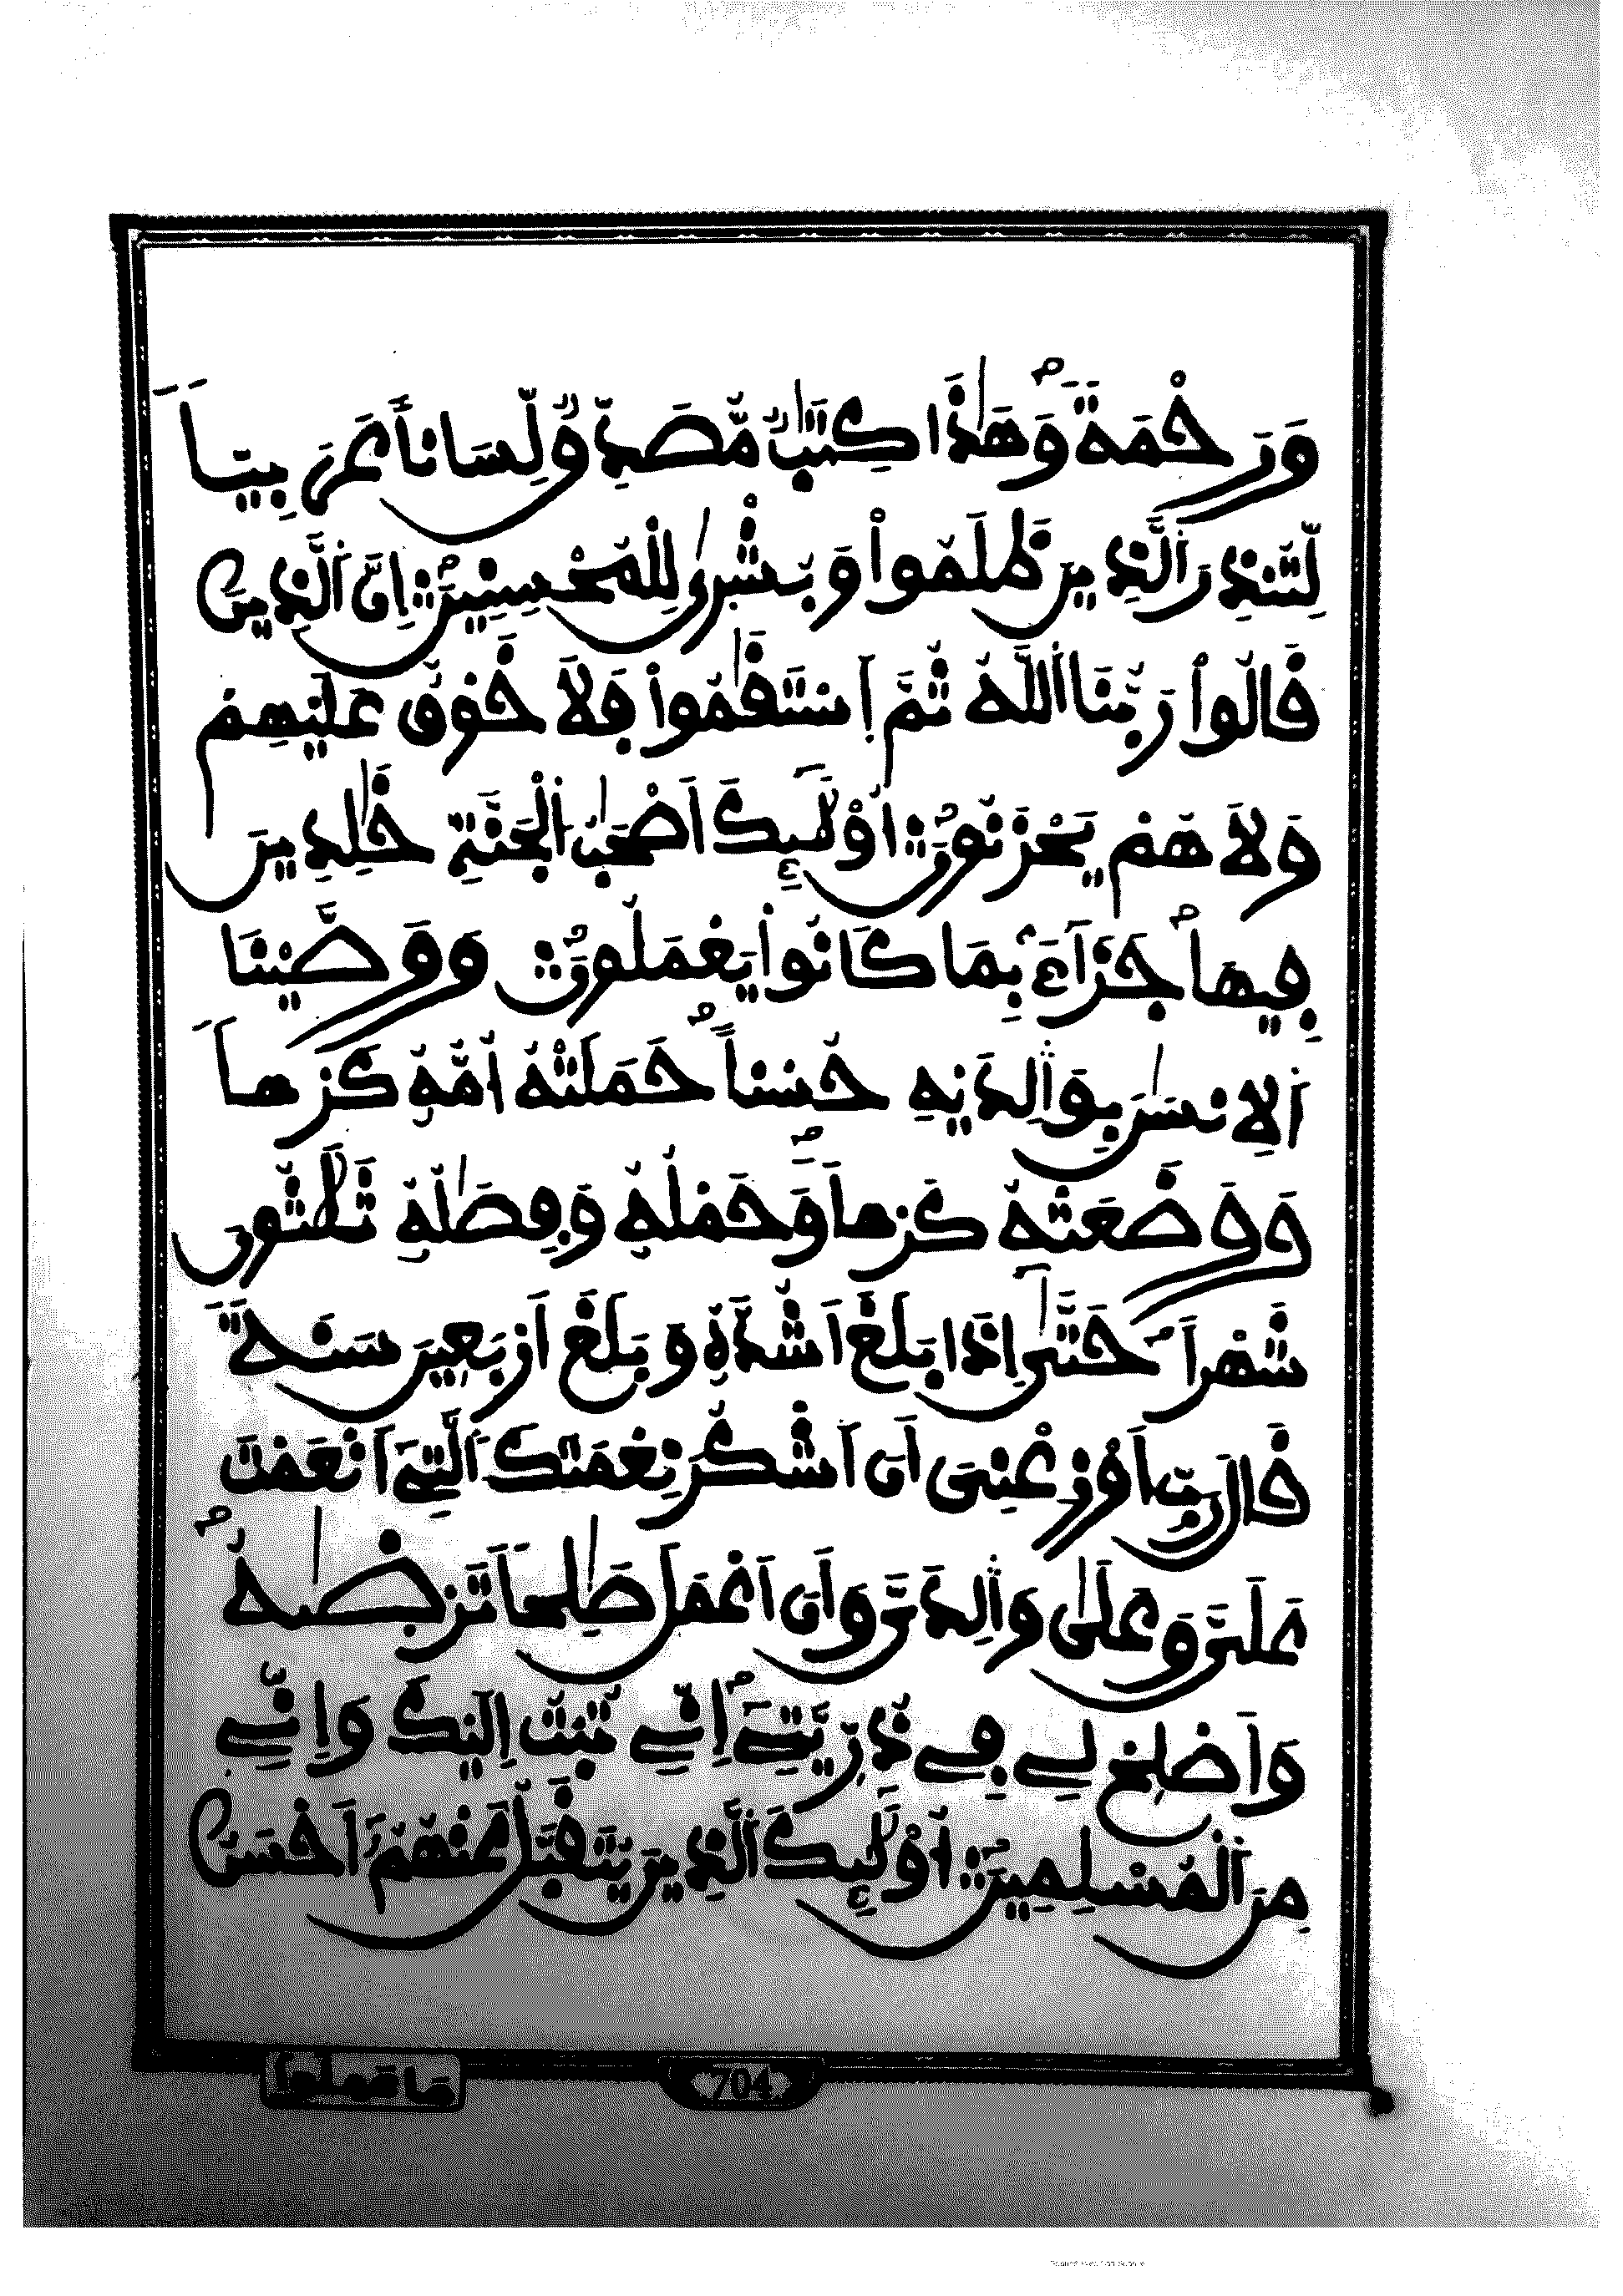 وَرَحْمَةً وَهَٰذَا كِتَٰبٌ مُّصَدِّقٌ لِّسَاناً عَرَبِيّاً
لِّتُنذِرَ الَّذِينَ ظَلَمُواْ وَبُشْرَىٰ لِلْمُحْسِنِينَ إِنَّ الَّذِينَ
قَالُواْ رَبُّنَا اللَّهُ ثُمَّ اَسْتَقَٰمُواْ فَلاَ خَوْفٌ عَلَيْهِمْ
وَلاَ هُمْ يَحْزَنُونَ أُوْلَٰئِكَ أَصْحَٰبُ الْجَنَّةِ خَٰلِدِينَ
فِيهَا جَزَآءَ بِمَا كَانُواْ يَعْمَلُونَ وَوَصَّيْنَا
اَلاِنسَٰنَ بِوَالِدَيْهِ حُسْناً حَمَلَتْهُ أُمُّهُ كَرْهاً
وَوَضَعَتْهُ كَرْهاً وَحَمْلُهُ وَفِصَٰلُهُ ثَلَٰثُونَ
شَهْراً حَتَّىٰ إِذَا بَلَغَ أَشُدَّهُ وَبَلَغَ أَرْبَعِينَ سَنَةً
قَالَ رَبِّ أَوْزِعْنِى أَنَ اَشْكُرَ نِعْمَتَكَ اَلَّتِى أَنْعَمْتَ
عَلَىَّ وَعَلَىٰ وَالِدَىَّ وَأَنَ اَعْمَلَ صَٰلِحاً تَرْضَىٰهُ
وَأَصْلِحْ لِے فِے ذُرِّيَّتِے إِنِّے تُبْتُ إِلَيْكَ وَإِنِّے
مِنَ الْمُسْلِمِينَ أُوْلَٰئِكَ الَّذِينَ يُتَقَبَّلُ عَنْهُمُ أَحْسَنُ
مَا عَمِلُواْ
704